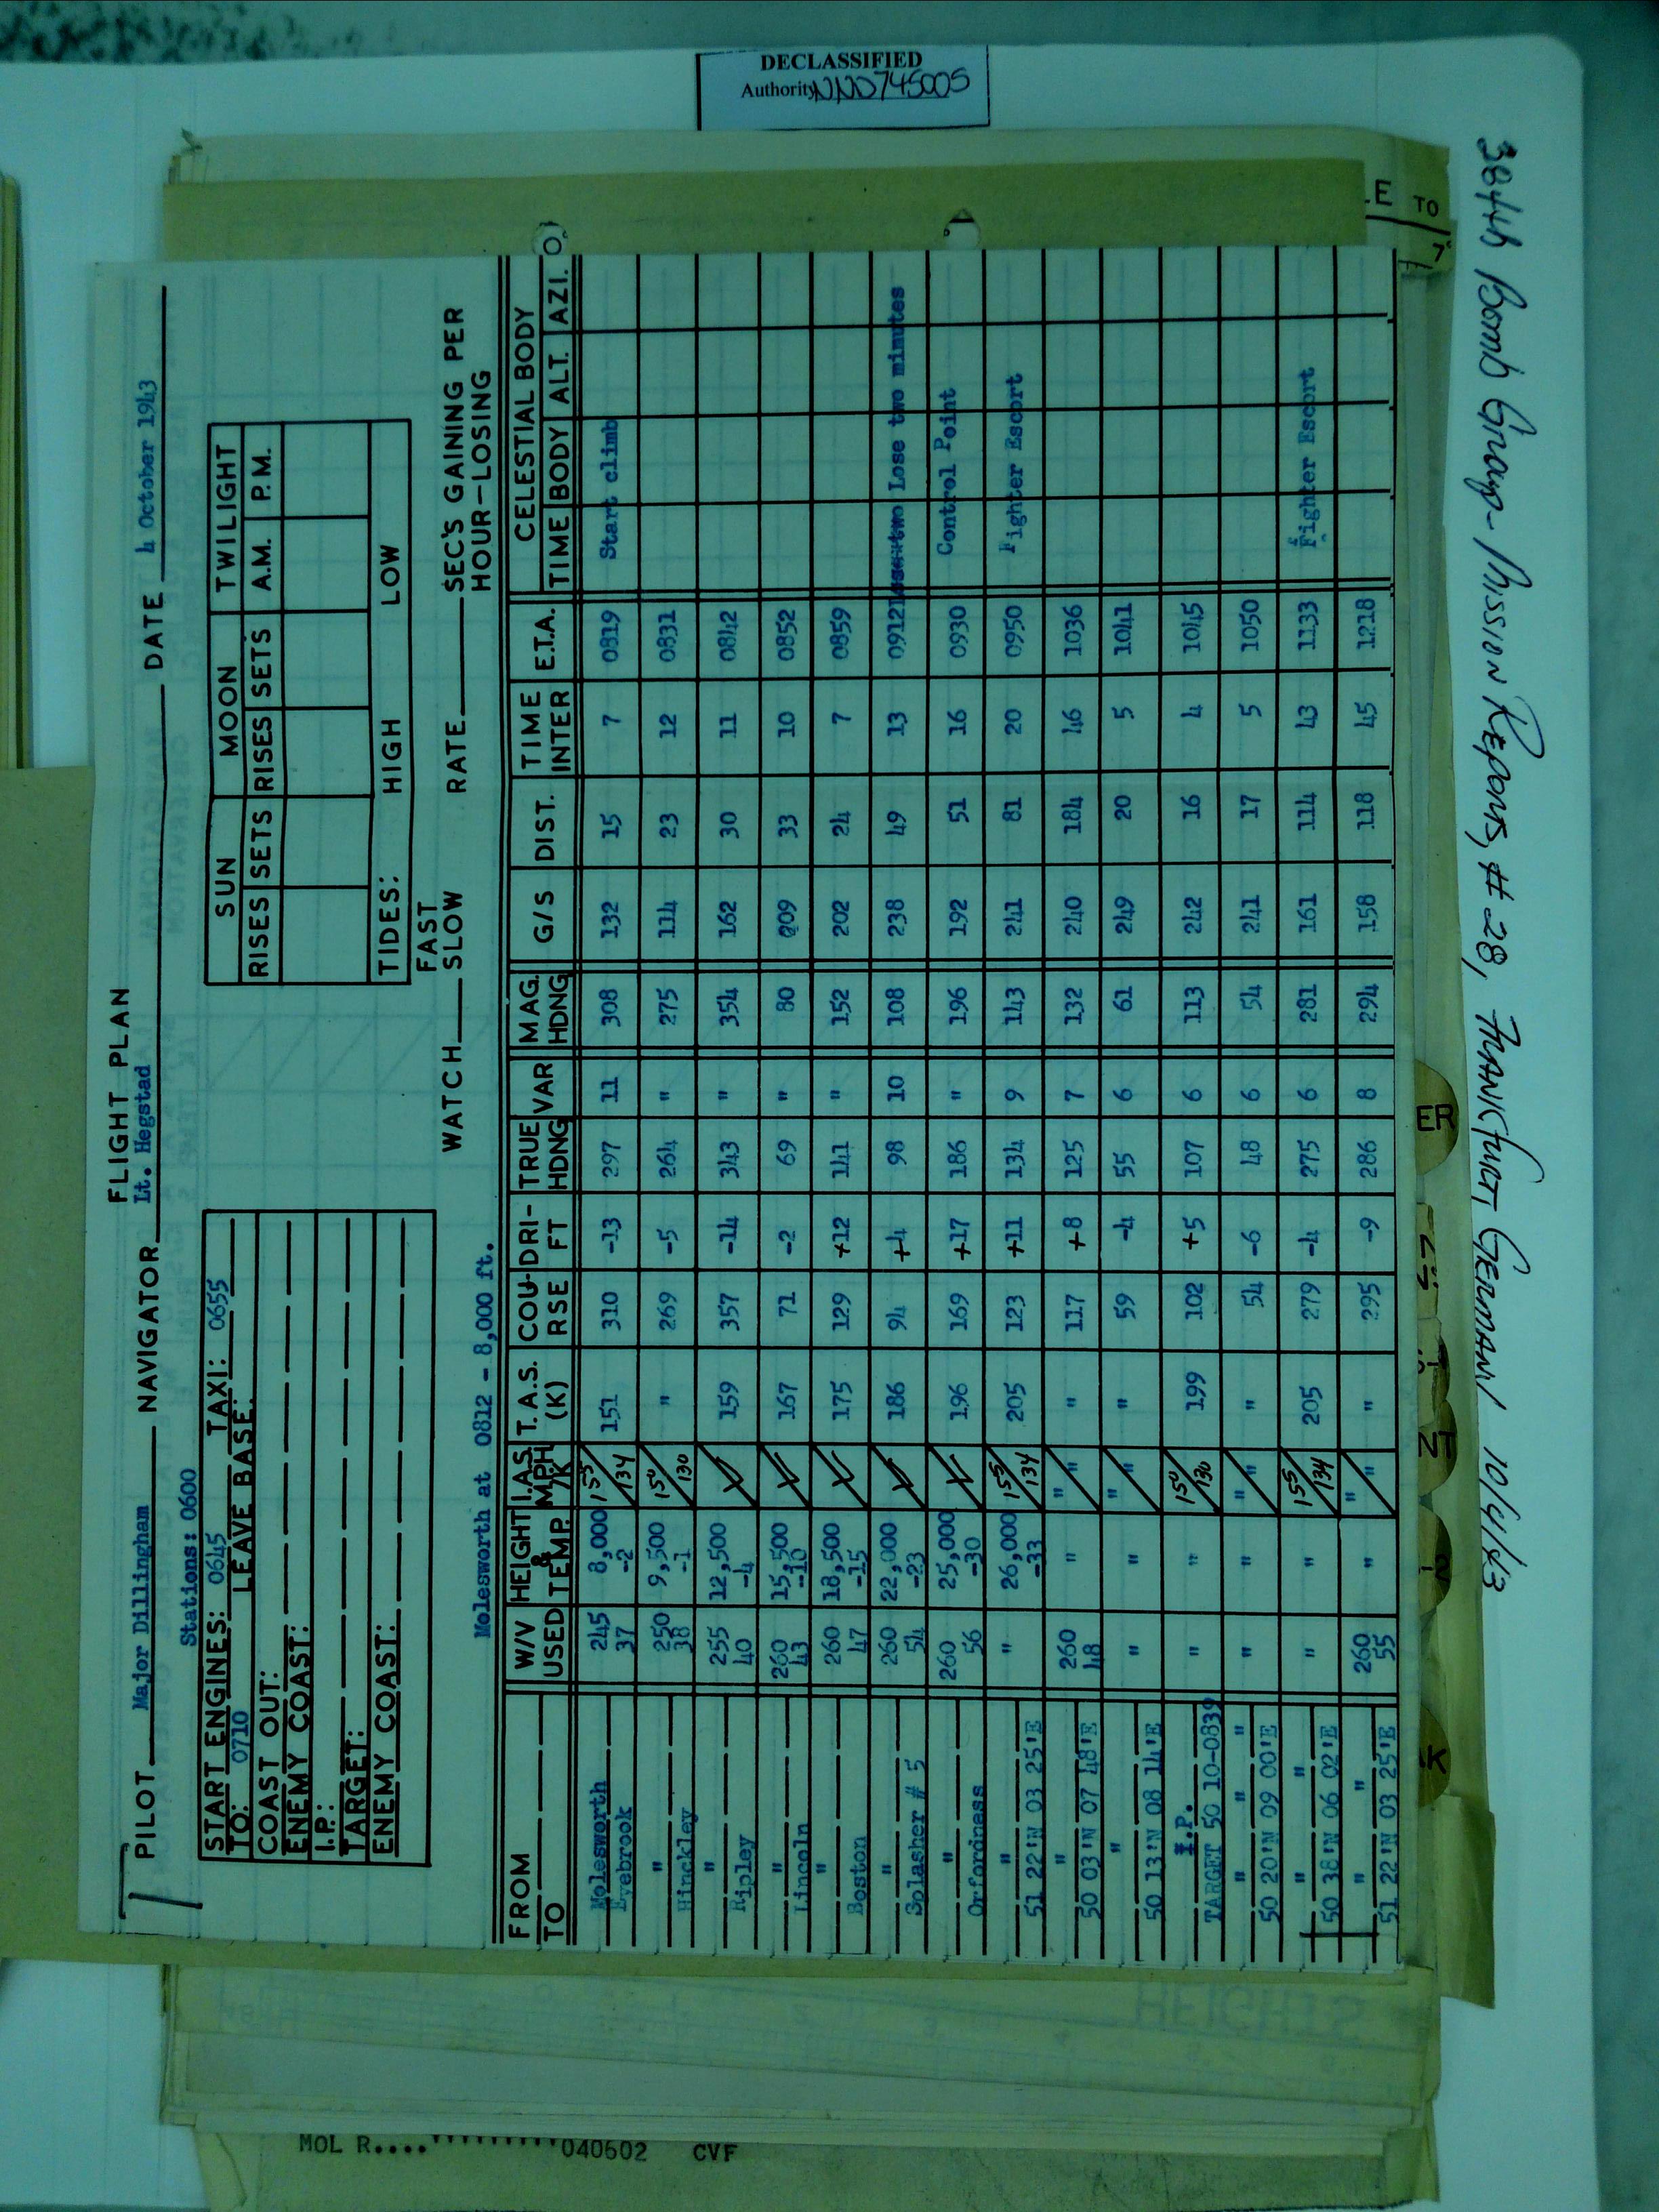 DECLASSIFIED
Authority NND745005
384th Bomb Group - Mission Reports, # 28, Frankfurt, Germany 10/4/43
FLIGHT PLAN
PILOT Major Dillingham NAVIGATOR Lt. Hegstad DATE 4 October 1943
Stations: 0600
START ENGINES: 0645 TAXI: 0655
TO: 0710 LEAVE BASE:
COAST OUT:
ENEMY COAST:
I.P.:
TARGET:
ENEMY COAST:
SUN MOON TWILIGHT
RISES SETS RISES SETS A.M. P.M.
TIDES: HIGH LOW
WATCH FAST SLOW RATE SEC'S GAINING PER HOUR-LOSING
Molesworth at 0812 - 8,000 ft.
FROM TO W/V USED HEIGHT & TEMP. I.A.S. MPH/K T.A.S. (K) COURSE DRIFT TRUE HDNG VAR MAG. HDNG G/S DIST. TIME INTER E.T.A. CELESTIAL BODY
TIME BODY ALT. AZI.
Molesworth 245 8,000 155
Eyebrook 37 -2 134 151 310 -13 297 11 308 132 15 7 0819 Start climb
" 250 9,500 150
Hinckley 38 -1 130 " 269 -5 264 " 275 114 23 12 0831
" 255 12,500
Ripley 40 -4 159 357 -14 343 " 354 162 30 11 0842
" 260 15,500
Lincoln 43 -10 167 71 -2 69 " 80 209 33 10 0852
" 260 18,500
Boston 47 -15 175 129 +12 141 " 152 202 24 7 0859
" 260 22,000
Splasher # 5 54 -23 186 94 +4 98 10 108 238 49 13 0912 Lose two minutes
" 260 25,000
Orfordness 56 -30 196 169 +17 186 " 196 192 51 16 0930 Control Point
" " 26,000 155
51 22'N 03 25'E -33 134 205 123 +11 134 9 143 241 81 20 0950 Fighter Escort
" 260 " "
50 03'N 07 48'E 48 " 117 +8 125 7 132 240 184 46 1036
" " " "
50 13'N 08 14'E " 59 -4 55 6 61 249 20 5 1041
I.P. " " 150
TARGET 50 10-0839 130 199 102 +5 107 6 113 242 16 4 1045
" " " " " "
50 20'N 09 00'E " 54 -6 48 6 54 241 17 5 1050
" " " " 155
50 38'N 06 02'E 134 205 279 -4 275 6 281 161 114 43 1133 Fighter Escort
" " 260 " "
51 22'N 03 25'E 55 " 295 -9 286 8 294 158 118 45 1218
HEIGHTS
MOL R.... 040602 CVF
E
TO
ER
K